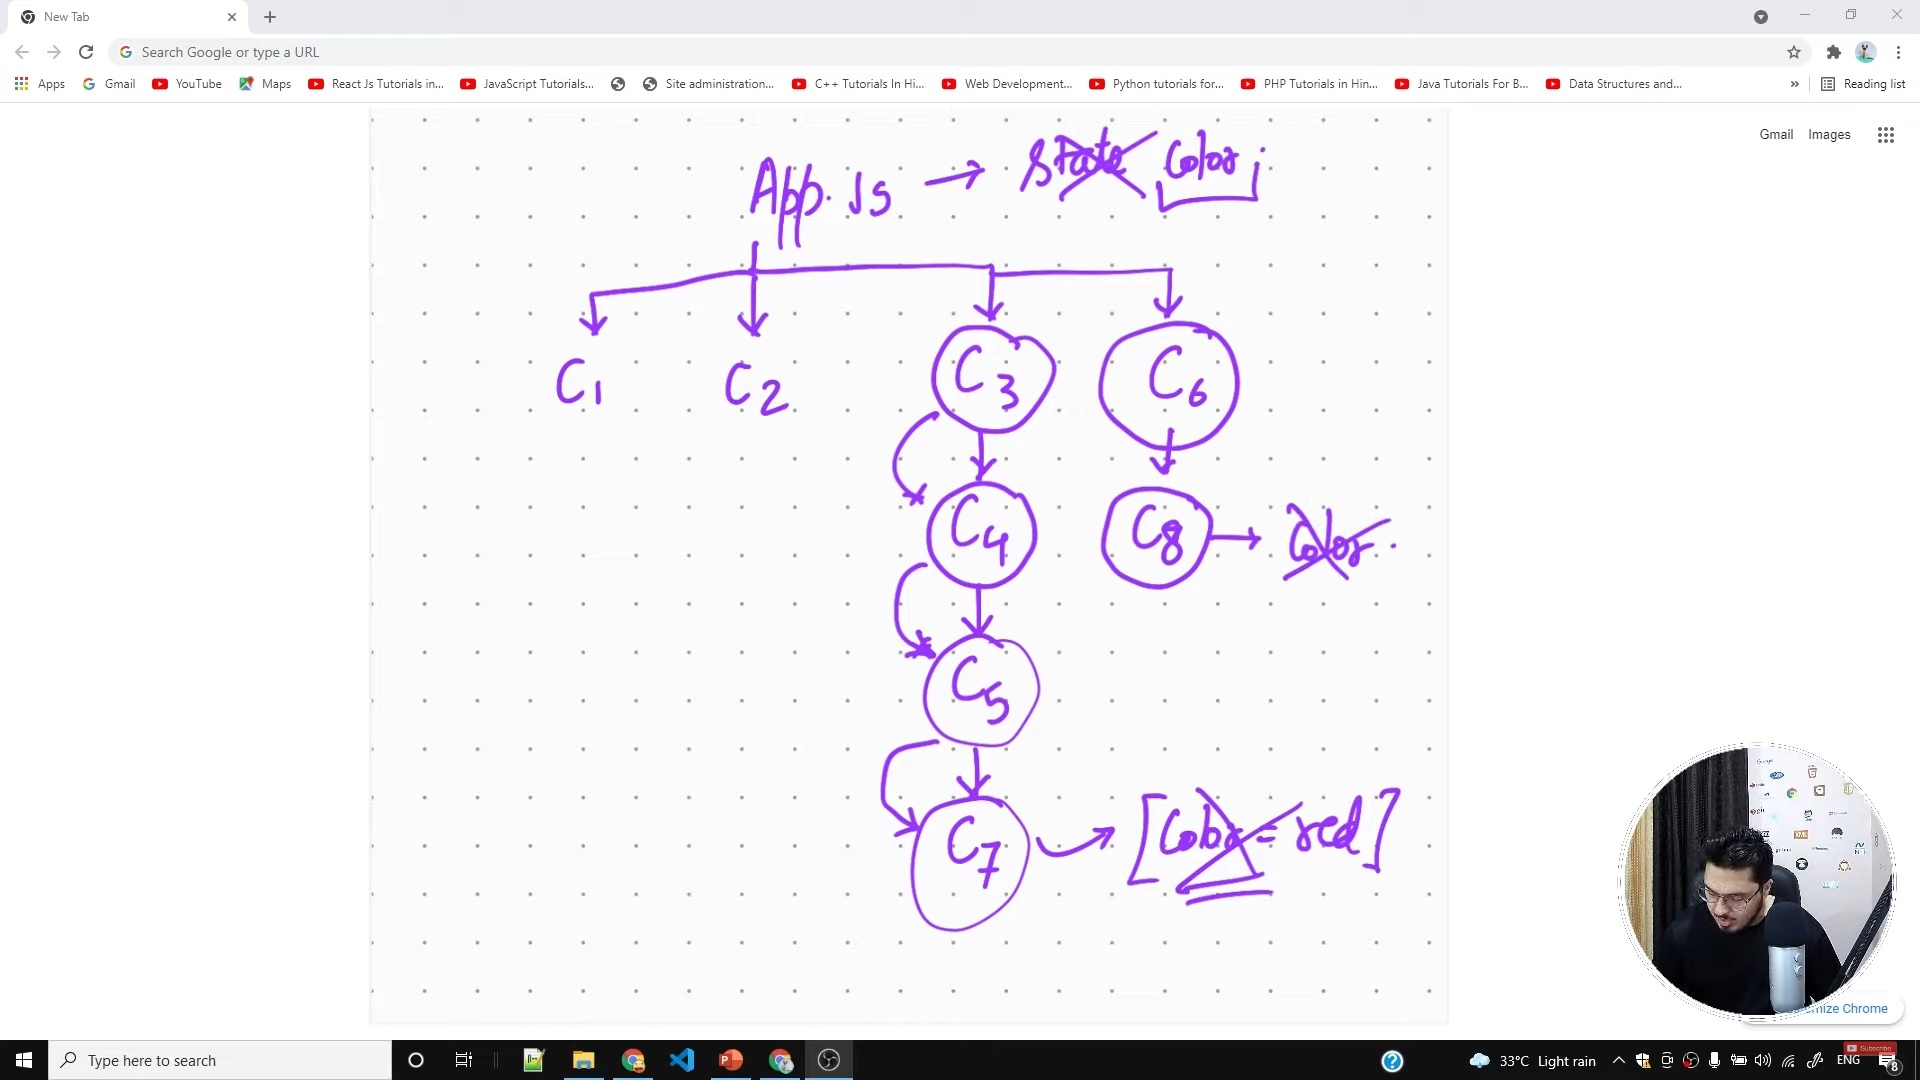 New Tab
Search Google or type a URL
Apps Gmail YouTube Maps React Js Tutorials in... JavaScript Tutorials... Site administration... C++ Tutorials In Hi... Web Development... Python tutorials for... PHP Tutorials in Hin... Java Tutorials For B... Data Structures and... » Reading list
Gmail Images
App.Js → State Color;
C1 C2 C3 C6
C4 C8 → Color.
C5
C7 → [Color = red]
mize Chrome
Type here to search
33°C Light rain ENG
Subscribe
8